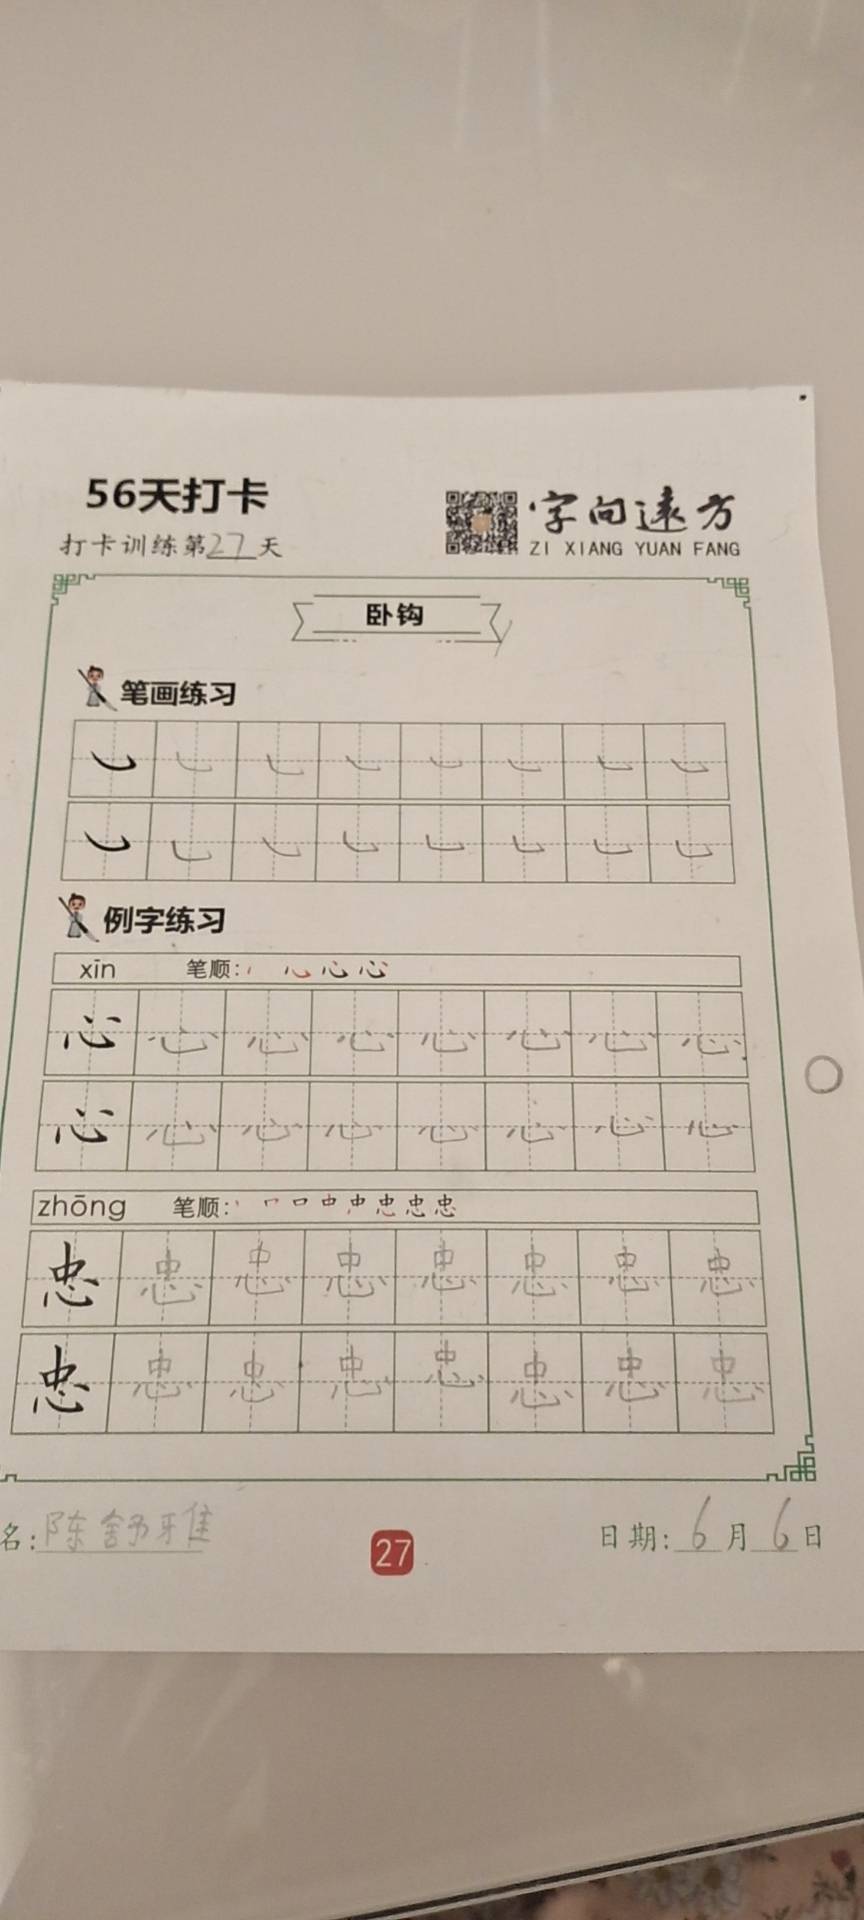 56天打卡
打卡训练第27天
字向远方
ZI XIANG YUAN FANG
卧钩
笔画练习
㇃ ㇃ ㇃ ㇃ ㇃ ㇃ ㇃ ㇃
㇃ ㇃ ㇃ ㇃ ㇃ ㇃ ㇃ ㇃
例字练习
xīn 笔顺:
心 心 心 心 心 心 心 心
心 心 心 心 心 心 心 心
zhōng 笔顺:
忠 忠 忠 忠 忠 忠 忠 忠
忠 忠 忠 忠 忠 忠 忠 忠
名:陈舒雅
27
日期:6月6日